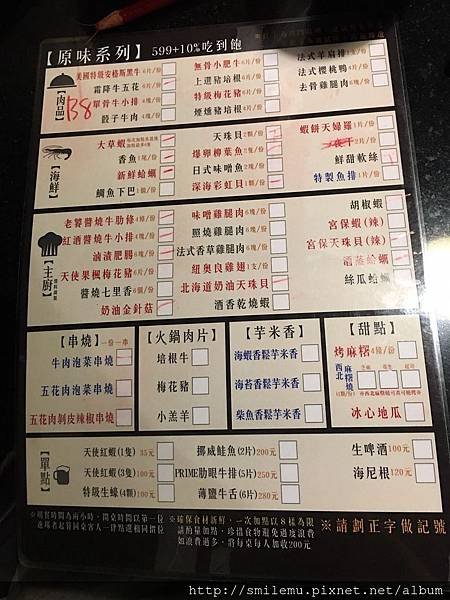 【原味系列】599+10%吃到飽
【肉品】
138
美國特級安格斯黑牛 6片/份
霜降牛五花 6片/份
單骨牛小排 4塊/份
骰子牛肉 4塊/份
無骨小肥牛 6片/份
上選豬培根 6片/份
特級梅花豬 6片/份
煙燻豬培根 6片/份
法式羊肩排 1支/份
法式櫻桃鴨 4片/份
去骨雞腿肉 6塊/份
【海鮮】
大草蝦
香魚 1尾/份
新鮮蛤蠣
鯛魚下巴 1個/份
天珠貝 2顆/份
爆卵柳葉魚 2隻/份
日式味噌魚 2塊/份
深海彩虹貝 1顆/份
蝦餅天婦羅 1片/份
鮮甜軟絲
特製魚排 1片/份
【主廚】
老饕醬燒牛肋條 4塊/份
紅酒醬燒牛小排 4塊/份
滷漬肥腸 6塊/份
天使果楓梅花豬 6片/份
醬燒七里香 6個/份
奶油金針菇
味噌雞腿肉 6塊/份
照燒雞腿肉 6塊/份
法式香草雞腿肉 6塊/份
紐奧良雞翅 1支/份
北海道奶油天珠貝
酒香乾燒蝦
胡椒蝦
宮保蝦(辣)
宮保天珠貝(辣)
酒蒸蛤蠣
絲瓜蛤蠣
【串燒】一份一串
牛肉泡菜串燒
五花肉泡菜串燒
五花肉剝皮辣椒串燒
【火鍋肉片】
培根牛
梅花豬
小羔羊
【芋米香】
海蝦香鬆芋米香
海苔香鬆芋米香
柴魚香鬆芋米香
【甜點】
烤麻糬 4顆/份
冰心地瓜
【單點】
天使紅蝦(1隻) 35元
天使紅蝦(3隻) 100元
特級生蠔(4顆) 100元
挪威鮭魚(2片) 200元
PRIME肋眼牛排(5片) 250元
薄鹽牛舌(6片) 280元
生啤酒 100元
海尼根 120元
※用餐時間為兩小時，開桌時間以第一位
進場者起算同桌客人一律點選相同價位
※確保食材新鮮，一次加點以8樣為限
請酌量加點，珍惜食物避免過度浪費
如浪費過多，將每桌每人加收200元
※請劃正字做記號
http://smilemu.pixnet.net/album